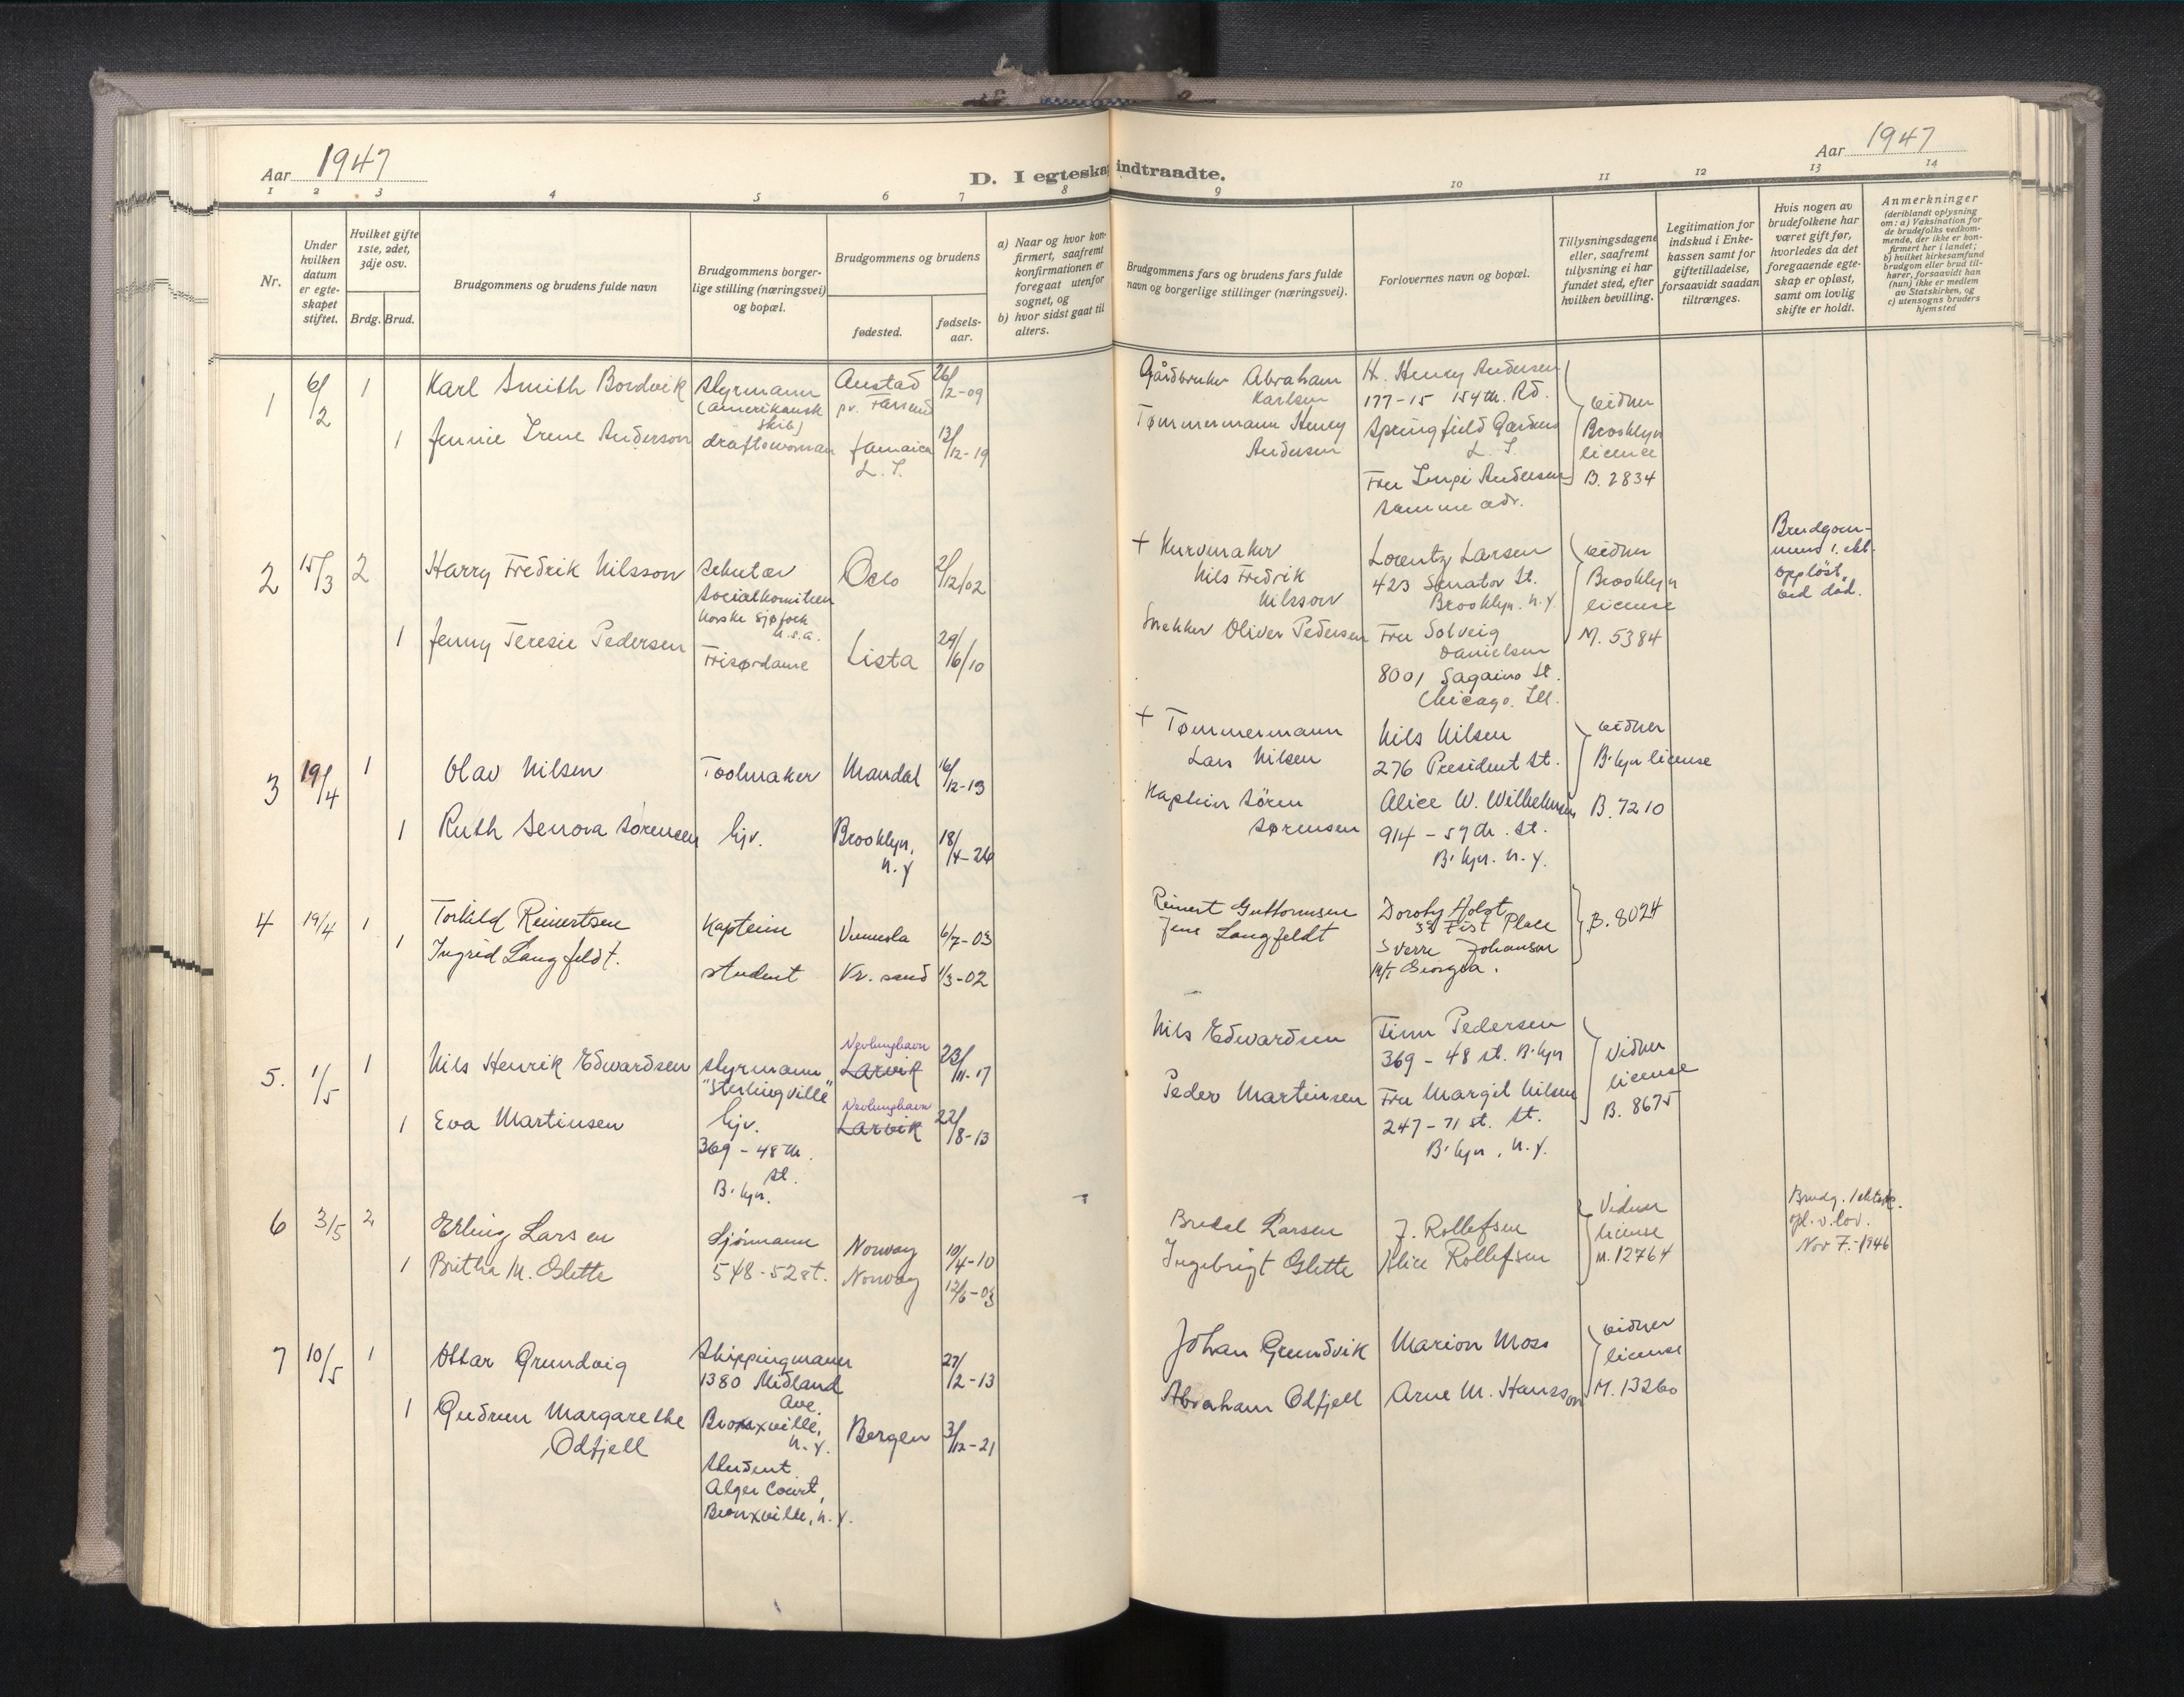 Aar 1947
D. I egteskap indtraadte.
Aar 1947
1 2 3 4 5 6 7 8 9 10 11 12 13 14
Nr.
Under
hvilken
datum
er egte-
skapet
stiftet.
Hvilket gifte
1ste, 2det,
3dje osv.
Brdg. Brud.
Brudgommens og brudens fulde navn
Brudgommens borger-
lige stilling (næringsvei)
og bopæl.
Brudgommens og brudens
fødested.
fødsels-
aar.
a) Naar og hvor kon-
firmert, saafremt
konfirmationen er
foregaat utenfor
sognet, og
b) hvor sidst gaat til
alters.
Brudgommens fars og brudens fars fulde
navn og borgerlige stillinger (næringsvei).
Forlovernes navn og bopæl.
Tillysningsdagene
eller, saafremt
tillysning ei har
fundet sted, efter
hvilken bevilling.
Legitimation for
indskud i Enke-
kassen samt for
giftetilladelse,
forsaavidt saadan
tiltrænges.
Hvis nogen av
brudefolkene har
været gift før,
hvorledes da det
foregaaende egte-
skap er opløst,
samt om lovlig
skifte er holdt.
Anmerkninger
(deriblandt oplysning
om: a) Vaksination for
de brudefolks vedkom-
mende, der ikke er kon-
firmert her i landet;
b) hvilket kirkesamfund
brudgom eller brud til-
hører, forsaavidt han
(hun) ikke er medlem
av Statskirken, og
c) utensogns bruders
hjemsted
1 6/2 1
Karl Smith Bordvik
Styrmann
(amerikansk
skib)
Austad
pr. Farsund
26/2-09
Gårdbruker Abraham
Karlsen
H. Henry Andersen
177-15 154th. Rd.
Springfield Gardens
L. I.
Fru Lempi Andersen
samme adr.
vidner
Brooklyn
licence
B. 2834
1 Jennie Irene Anderson
draftswoman
Jamaica
L. I.
12/12-19
Tømmermann Henry
Andersen
2 15/3 2
Harry Fredrik Nilsson
sekretær
Socialkomiteen
Norske Sjøfolk
U.S.A.
Oslo
2/12/02
+ Kurvmaker
Nils Fredrik
Nilsson
Lorentz Larsen
423 Senator St.
Brooklyn. N.Y.
vidner
Brooklyn
license
M. 5384
Brudgom-
mens 1. ekt.
oppløst
ved død.
1 Jenny Teresie Pedersen
Frisørdame
Lista
29/6/10
Snekker Oliver Pedersen
Fru Solveig
Danielsen
8001 Sagaino St.
Chicago. Ill.
3 19/4 1
Olav Nilsen
Toolmaker
Mandal
16/12-13
+ Tømmermann
Lars Nilsen
Nils Nilsen
276 President St.
vidner
B'lyn license
B. 7210
1 Ruth Senora Sørensen
hjv.
Brooklyn,
N.Y
18/4-26
Kaptein Sören
Sørensen
Alice W. Wilhelmsen
914 - 57th. St.
B'lyn. N.Y.
4 19/4 1
Torkild Reinertsen
Kaptein
Vennesla
6/7-03
Reinert Guttormsen
Doroty Holst
39 First Place
B. 8024
1 Ingrid Langfeldt.
student
Kr. sand
1/3-02
Jens Langfeldt
Sverre Johansen
M/T Georgia.
5. 1/5 1
Nils Henrik Edwardsen
styrmann
"Sterlingville"
Nevlunghavn
Larvik
23/11-17
Nils Edwardsen
Finn Pedersen
369 - 48 st. B'lyn
Vidner
license
B. 8675
1 Eva Martinsen
hjv.
369 - 48th.
St.
B'lyn.
Nevlunghavn
Larvik
22/8-13
Peder Martinsen
Fru Margit Nilsen
247 - 71 st. St.
B'lyn, N.Y.
6 3/5 2
Erling Larsen
Sjømann
548-52 st.
Norway
10/4-10
Bredal Larsen
J. Rollefsen
Vidner
license
M. 12764
Brudg. 1 ektsk.
opl. v. lov.
Nov 7.-1946
1 Britha M. Glette
Norway
12/6-03
Ingebrigt Glette
Alice Rollefsen
7 10/5 1
Ottar Grundvig
Shippingmann
1380 Midland
Ave.
Bronxville,
N.Y.
27/2-13
Johan Grundvik
Marion Moss
vidner
license
M. 13260
1 Gudrun Margarethe
Odfjell
Student
Alger Court,
Bronxville, N.Y.
Bergen
3/12-21
Abraham Odfjell
Arne M. Hansson